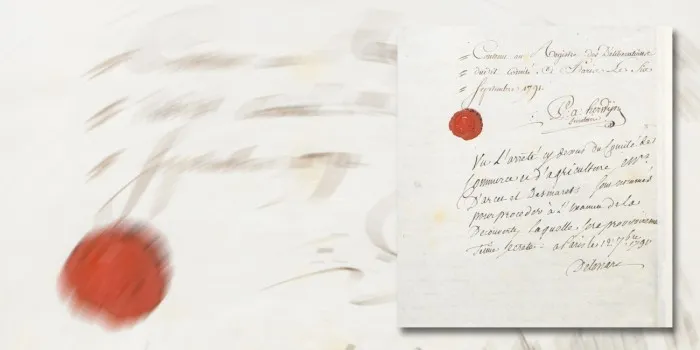 = Conforme au Registre des Délibérations
= dudit Comité. à Paris Le Six
= Septembre 1791
Vu L'arrêté cy dessus du Comité de
Commerce et D'agriculture
D'arcet et Desmarets sont nommés
pour procéder à L'examen de La
Découverte, Laquelle sera provisoirem
secrette = à Paris le 12 7bre
1791
Delessart